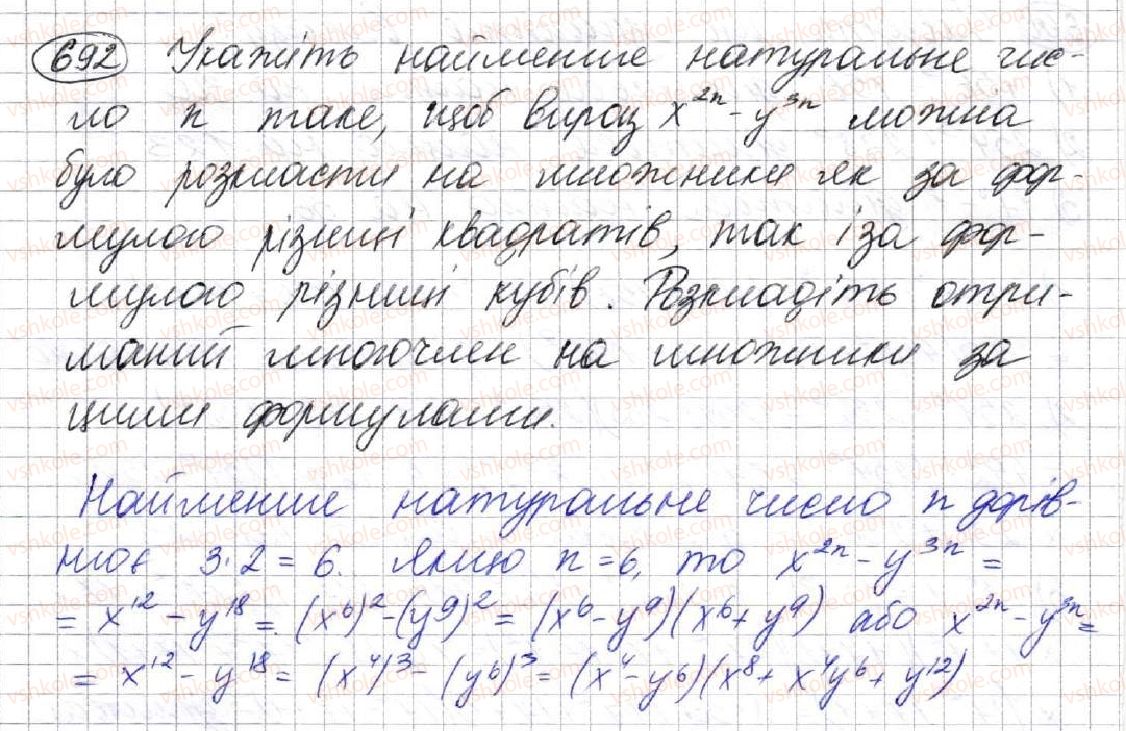 692 Укажіть найменше натуральне чис-
ло n таке, щоб вираз x^2n - y^3n можна
було розкласти на множники як за фор-
мулою різниці квадратів, так і за фор-
мулою різниці кубів. Розкладіть отри-
маний многочлен на множники за
цими формулами.
Найменше натуральне число n дорів-
нює 3·2 = 6. Якщо n = 6, то x^2n - y^3n =
= x^12 - y^18 = (x^6)^2 - (y^9)^2 = (x^6 - y^9)(x^6 + y^9) або x^2n - y^3n =
= x^12 - y^18 = (x^4)^3 - (y^6)^3 = (x^4 - y^6)(x^8 + x^4y^6 + y^12)